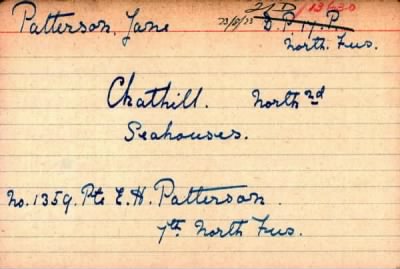 Patterson, Jane 2/D/13630
23/5/33 D.P. 17. P.
North. Fus.
Chathill. North nd
Seahouses.
No. 1359. Pte E. H. Patterson.
7th North Fus.